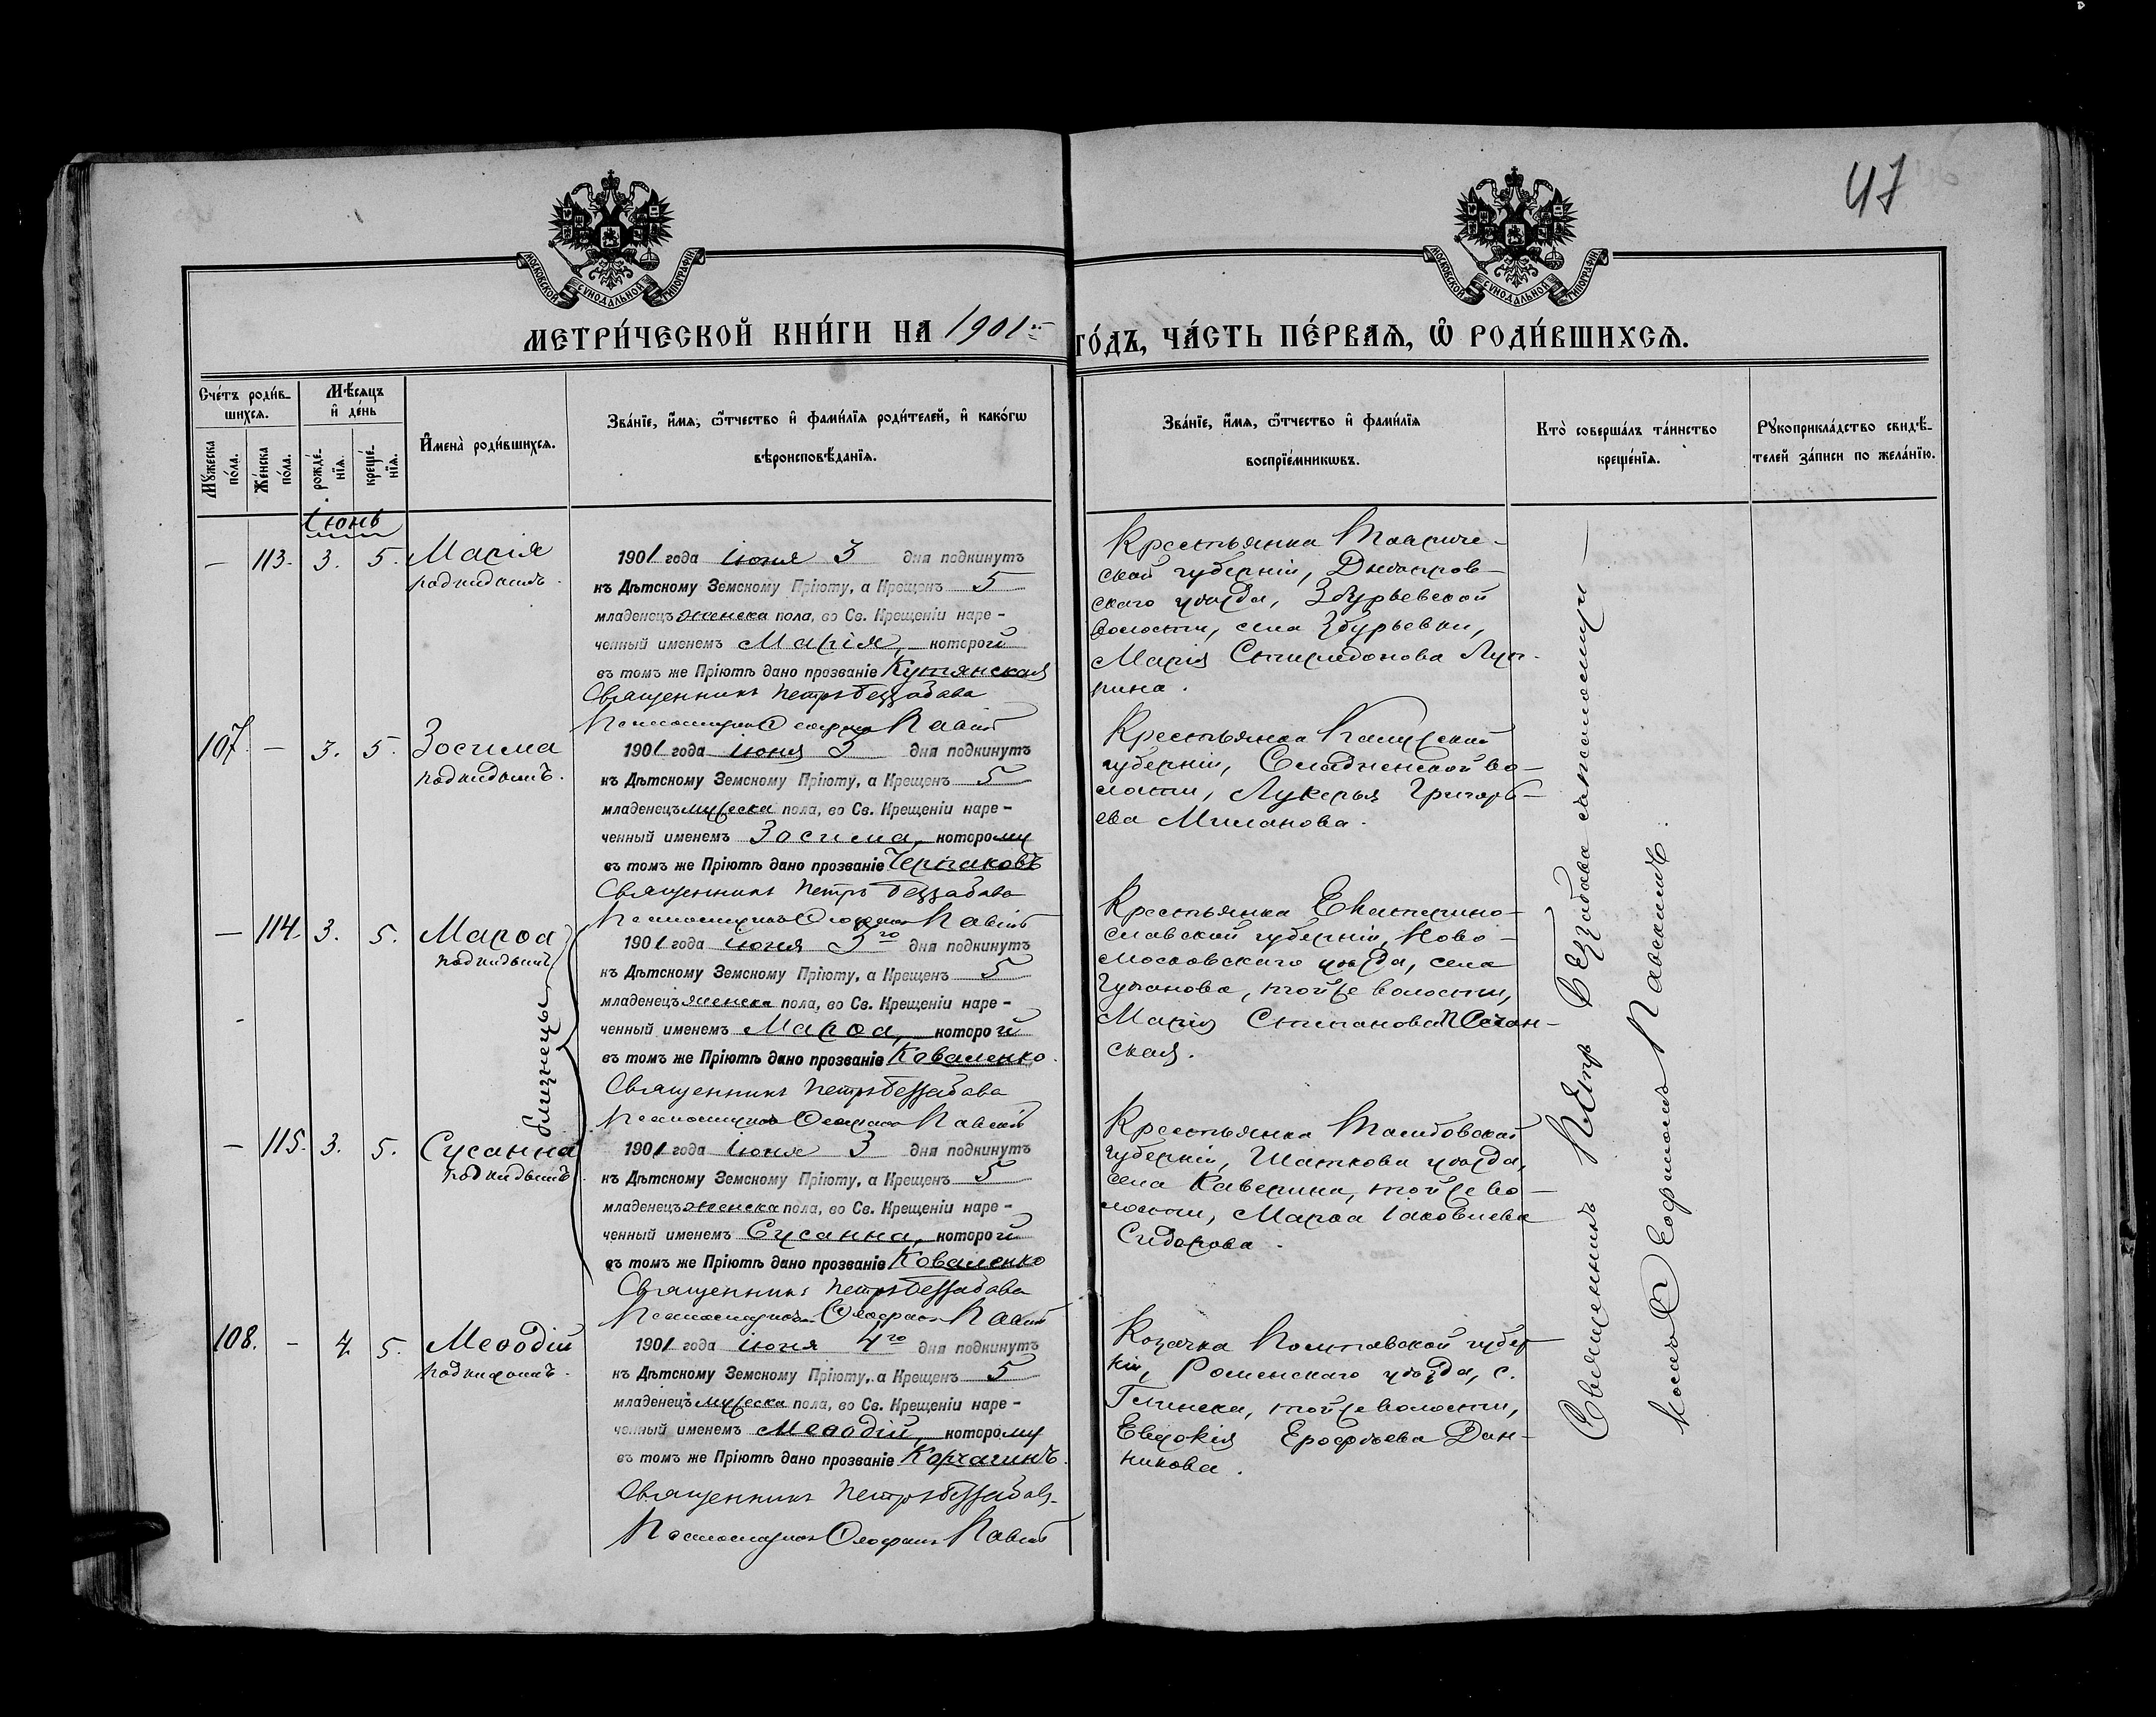 47
МОСКОВСКОЙ СУНОДАЛЬНОЙ ТИПОГРАФІИ
МОСКОВСКОЙ СУНОДАЛЬНОЙ ТИПОГРАФІИ
МЕТРИ́ЧЕСКОЙ КНИ́ГИ НА 1901 ГО́ДЪ, ЧА́СТЬ ПЕ́РВАѦ, Ѡ РОДИ́ВШИХСѦ.
Сче́тъ роди́в-
шихсѧ.
Мꙋжеска по́ла.
Же́нска по́ла.
Мѣ́сѧцъ
и҆ де́нь
рожде́-
нїѧ.
креще́-
нїѧ.
И҆мена̀ роди́вшихсѧ.
Зва́нїе, и҆́мѧ, ѻ҆́тчество и҆ фами́лїѧ роди́телей, и҆ како́гѡ
вѣроисповѣ́данїѧ.
Зва́нїе, и҆́мѧ, ѻ҆́тчество и҆ фами́лїѧ
воспрїе́мникѡвъ.
Кто̀ соверша́лъ та́инство
креще́нїѧ.
Рꙋкоприкла́дство свидѣ́-
телей за́писи по жела́нїю.
Іюнь
— 113. 3. 5. Марія
подкидышъ.
1901 года іюня 3 дня подкинутъ
къ Дѣтскому Земскому Пріюту, а Крещенъ 5
младенецъ женска пола, во Св. Крещеніи наре-
ченный именемъ Марія, которой
въ томъ же Пріютѣ дано прозваніе Кутянская
Священникъ Петръ Беззабава
Псаломщикъ
Крестьянка Тавриче-
ской губерніи, Днѣпров-
скаго уѣзда, Збурьевской
волости, села Збурьевки,
Марія Спиридонова
107. — 3. 5. Зосима
подкидышъ.
1901 года іюня 3 дня подкинутъ
къ Дѣтскому Земскому Пріюту, а Крещенъ 5
младенецъ мужеска пола, во Св. Крещеніи наре-
ченный именемъ Зосима, которому
въ томъ же Пріютѣ дано прозваніе Черпаковъ
Священникъ Петръ Беззабава
Псаломщикъ
Крестьянка
губерніи, во-
лости, Лукерья Григорь-
ева
— 114. 3. 5. Марѳа
подкидышъ
1901 года іюня 3го дня подкинутъ
къ Дѣтскому Земскому Пріюту, а Крещенъ 5
младенецъ женска пола, во Св. Крещеніи наре-
ченный именемъ Марѳа, которой
въ томъ же Пріютѣ дано прозваніе Коваленко.
Священникъ Петръ Беззабава
Псаломщикъ
Крестьянка Екатерино-
славской губерніи, Ново-
московскаго уѣзда, села
той же волости,
Марія Степанова
близнецы
— 115. 3. 5. Сусанна
подкидышъ.
1901 года іюня 3 дня подкинутъ
къ Дѣтскому Земскому Пріюту, а Крещенъ 5
младенецъ женска пола, во Св. Крещеніи наре-
ченный именемъ Сусанна, которой
въ томъ же Пріютѣ дано прозваніе Коваленко
Священникъ Петръ Беззабава
Псаломщикъ
Крестьянка Тамбовской
губерніи, уѣзда,
села Каверина, той же во-
лости, Марѳа Іаковлева
Сидорова.
108. — 4. 5. Меѳодій
подкидышъ.
1901 года іюня 4го дня подкинутъ
къ Дѣтскому Земскому Пріюту, а Крещенъ 5
младенецъ мужеска пола, во Св. Крещеніи наре-
ченный именемъ Меѳодій, которому
въ томъ же Пріютѣ дано прозваніе Корчагинъ.
Священникъ Петръ Беззабава
Псаломщикъ
Козачка Полтавской губер-
ніи, Роменскаго уѣзда, с.
Глинска, той же волости,
Евдокія Ерофѣева Дан-
никова.
Священникъ Петръ Беззабава съ псаломщи-
комъ